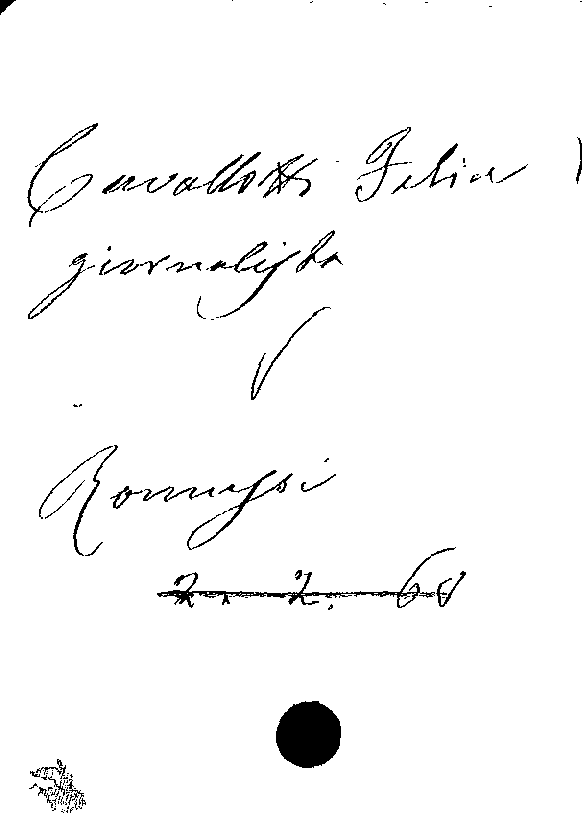 Cavallotti Felice
giornalista
V
Romussi
2. 2. 68